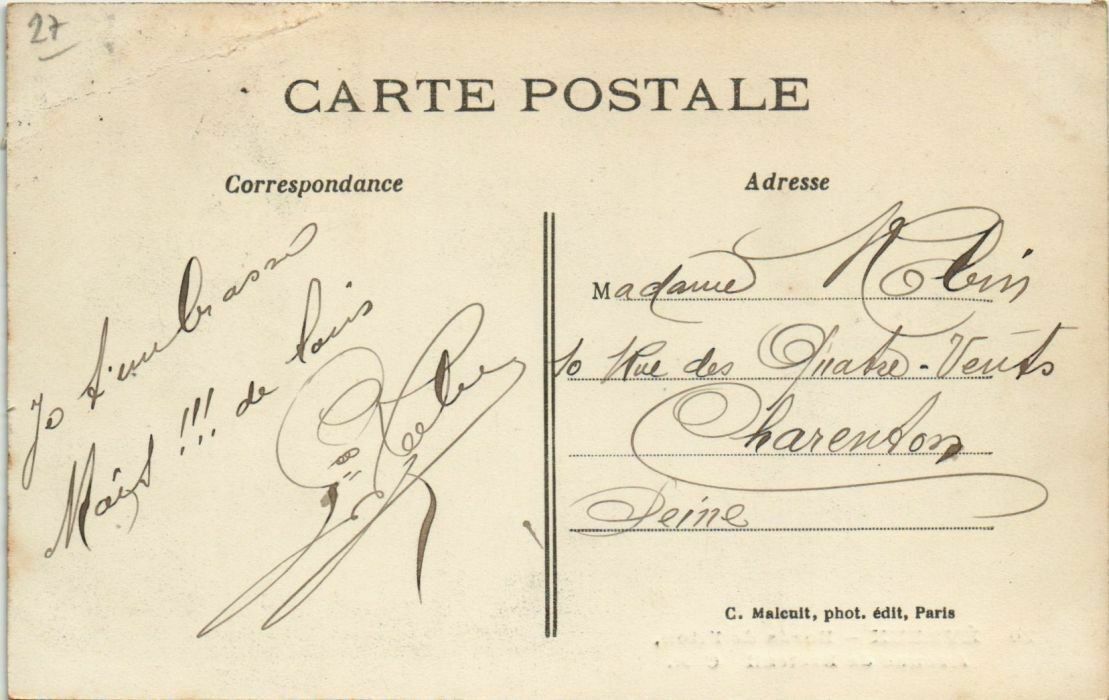 27
CARTE POSTALE
Correspondance
Je t'embrasse
!!! de loin
Adresse
Madame
10 Rue des Quatre-Vents
Charenton
Seine
C. Malcuit, phot. édit, Paris